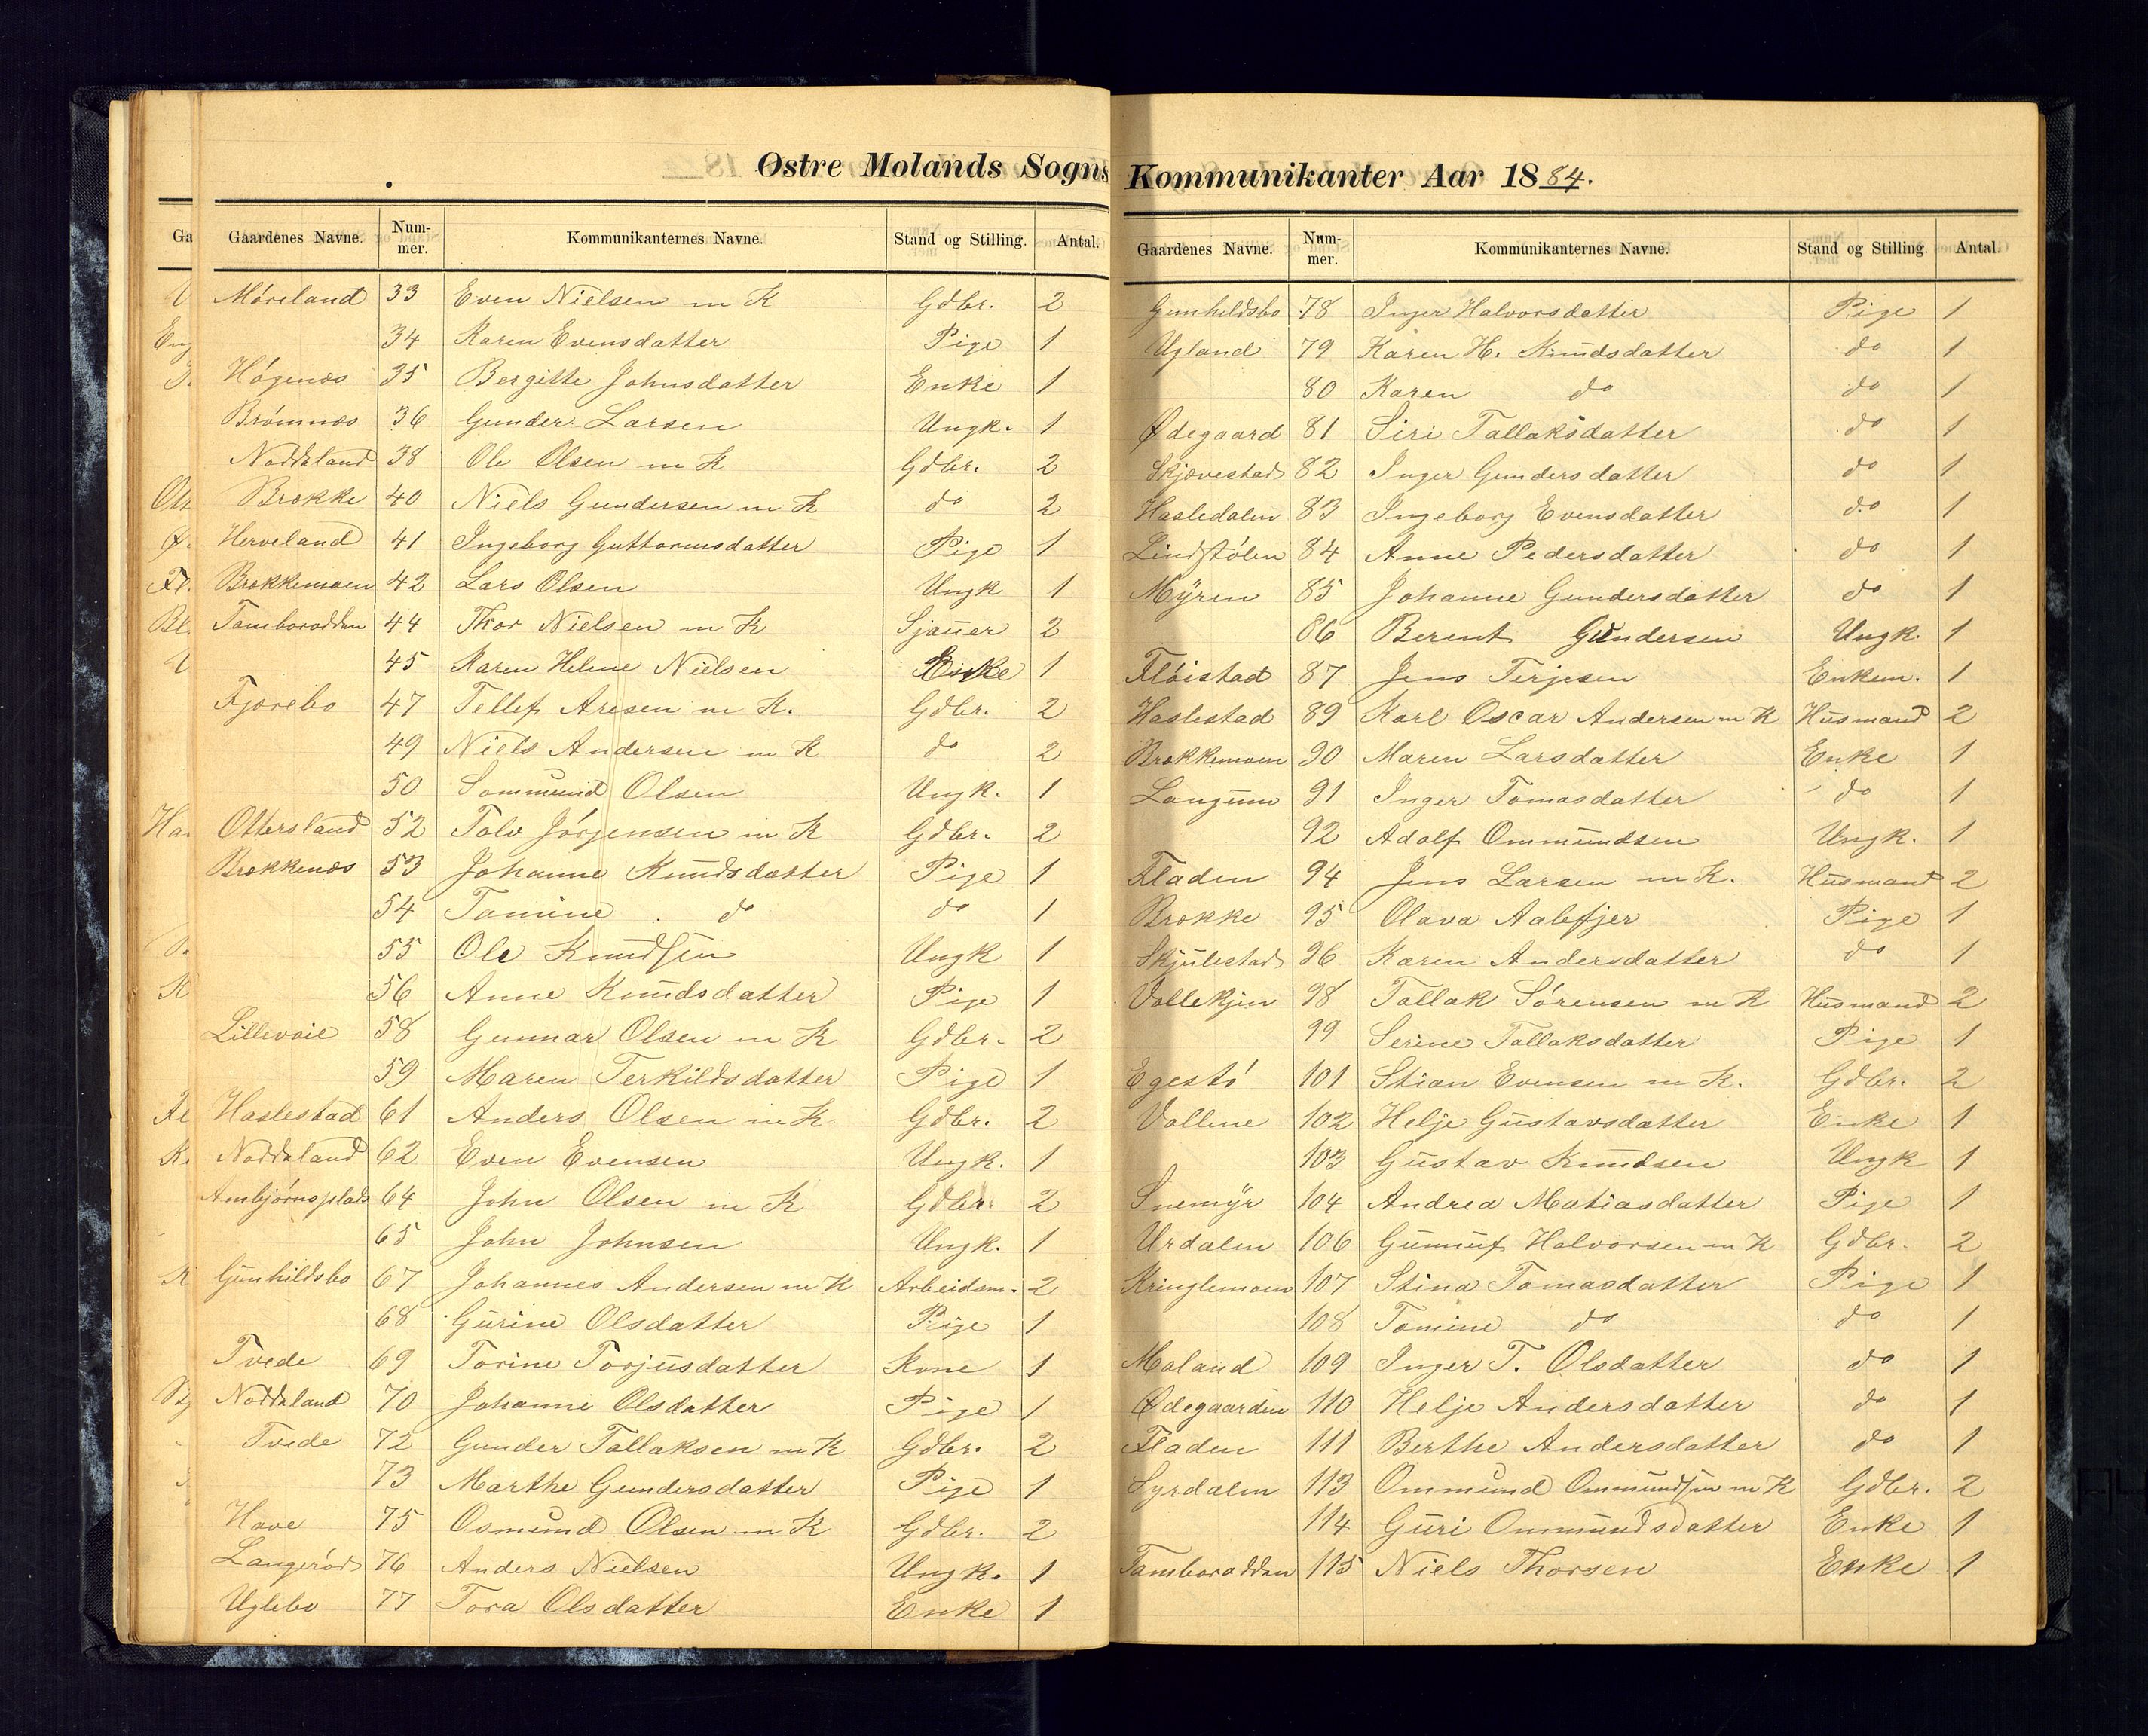 Østre Molands Sogns
Gaardenes Navne. Num-mer. Kommunikanternes Navne. Stand og Stilling. Antal.
Møreland 33 Even Nielsen m K Gdbr. 2
34 Karen Evensdatter Pige 1
Høgenæs 35 Bergitte Johnsdatter Enke 1
Brømnæs 36 Gunder Larsen Ungk. 1
Noddeland 38 Ole Olsen m K Gdbr. 2
Brække 40 Niels Gundersen m K do 2
Herveland 41 Ingeborg Guttormsdatter Pige 1
Brækkemoen 42 Lars Olsen Ungk 1
Tamborodden 44 Thor Nielsen m K Sjauer 2
45 Karen Helene Nielsen Enke 1
Fjærebo 47 Tellef Aresen m K. Gdbr. 2
49 Niels Andersen m K do 2
50 Sommund Olsen Ungk. 1
Ottersland 52 Tolv Jørgensen m K Gdbr. 2
Brækkenæs 53 Johanne Knudsdatter Pige 1
54 Tomine do do 1
55 Ole Knudsen Ungk 1
56 Anne Knudsdatter Pige 1
Lillevaie 58 Gunnar Olsen m K Gdbr. 2
59 Maren Terkildsdatter Pige 1
Haslestad 61 Anders Olsen m K Gdbr. 2
Noddeland 62 Even Evensen Ungk. 1
Ambjørnsplads 64 John Olsen m K Gdbr. 2
65 John Johnsen Ungk. 1
Gunhildsbo 67 Johannes Andersen m K Arbeidsm. 2
68 Gurine Olsdatter Pige 1
Tvede 69 Torine Torjusdatter Kone 1
Noddeland 70 Johanne Olsdatter Pige 1
Tvede 72 Gunder Tallaksen m K Gdbr. 2
73 Marthe Gundersdatter Pige 1
Have 75 Osmund Olsen m K Gdbr. 2
Langerød 76 Anders Nielsen Ungk. 1
Uglebo 77 Tora Olsdatter Enke 1
Kommunikanter Aar 1884.
Gaardenes Navne. Num-mer. Kommunikanternes Navne. Stand og Stilling. Antal.
Gunhildsbo 78 Inger Halvorsdatter Pige 1
Ugland 79 Karen H. Knudsdatter do 1
80 Karen do do 1
Ødegaard 81 Siri Tallaksdatter do 1
Skjævestad 82 Inger Gundersdatter do 1
Hasledalen 83 Ingeborg Evensdatter do 1
Lindstølen 84 Anne Pedersdatter do 1
Myren 85 Johanne Gundersdatter do 1
86 Berent Gundersen Ungk. 1
Fløistad 87 Jens Terjesen Enkem. 1
Haslestad 89 Karl Oscar Andersen m K Husmand 2
Brækkemoen 90 Maren Larsdatter Enke 1
Langum 91 Inger Tomasdatter do 1
92 Adolf Ommundsen Ungk. 1
Fladen 94 Jens Larsen m K. Husmand 2
Brække 95 Olava Aalefjer Pige 1
Skjulestad 96 Karen Andersdatter do 1
Vallekjen 98 Tallak Sørensen m K Husmand 2
99 Serine Tallaksdatter Pige 1
Egestø 101 Stian Evensen m K. Gdbr. 2
Vollene 102 Helje Gustavsdatter Enke 1
103 Gustav Knudsen Ungk 1
Snemyr 104 Andrea Matiasdatter Pige 1
Urdalen 106 Gunnuf Halvorsen m K Gdbr. 2
Kringlemoen 107 Stina Tomasdatter Pige 1
108 Tomine do do 1
Moland 109 Inger T. Olsdatter do 1
Ødegaarden 110 Helje Andersdatter do 1
Fladen 111 Berthe Andersdatter do 1
Syrdalen 113 Ommund Ommundsen m K Gdbr. 2
114 Guri Ommundsdatter Enke 1
Tamborodden 115 Niels Thorsen Enke 1